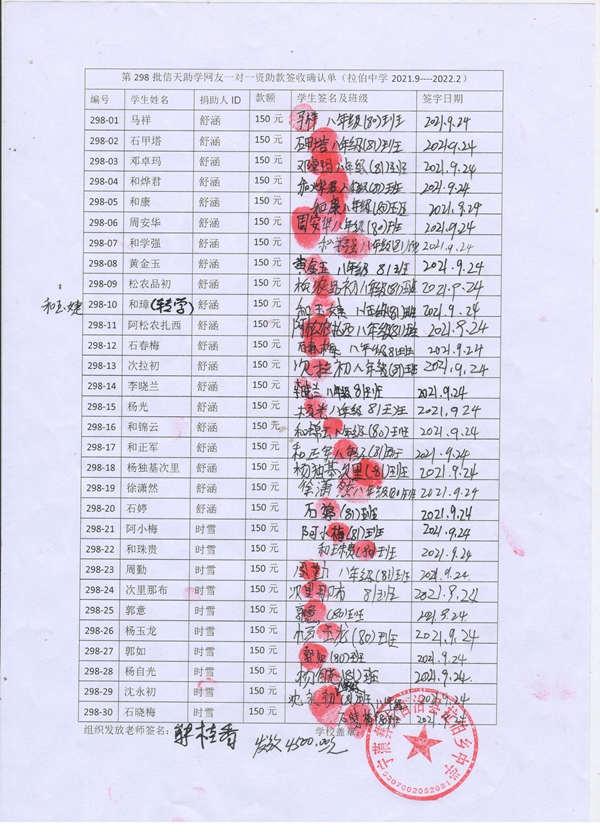 第 298 批信天助学网友一对一资助款签收确认单（拉伯中学 2021.9----2022.2）
编号 学生姓名 捐助人 ID 款额 学生签名及班级 签字日期
298-01 马祥 舒涵 150 元 马祥 八年级(80)班 2021.9.24
298-02 石甲塔 舒涵 150 元 石甲塔八年级(81)班 2021.9.24
298-03 邓卓玛 舒涵 150 元 邓卓玛八年级(81)班 2021.9.24
298-04 和烨君 舒涵 150 元 和烨君八年级(80)班 2021.9.24
298-05 和康 舒涵 150 元 和康八年级(80)班 2021.9.24
298-06 周安华 舒涵 150 元 周安华八年级(80)班 2021.9.24
298-07 和学强 舒涵 150 元 和学强八年级(81)班 2021.9.24
298-08 黄金玉 舒涵 150 元 黄金玉 八年级 81班 2021.9.24
298-09 松农品初 舒涵 150 元 松农品初八年级(81)班 2021.9.24
和玉婕 298-10 和璋(转学) 舒涵 150 元 和玉婕 八年级(81)班 2021.9.24
298-11 阿松农扎西 舒涵 150 元 阿松农扎西八年级(81)班 2021.9.24
298-12 石春梅 舒涵 150 元 石春梅 八年级(81)班 2021.9.24
298-13 次拉初 舒涵 150 元 次拉初八年级(81)班 2021.9.24
298-14 李晓兰 舒涵 150 元 李晓兰 八年级 81班 2021.9.24
298-15 杨光 舒涵 150 元 杨光八年级 81班 2021.9.24
298-16 和锦云 舒涵 150 元 和锦云八年级(80)班 2021.9.24
298-17 和正军 舒涵 150 元 和正军八年级(81)班 2021.9.24
298-18 杨独基次里 舒涵 150 元 杨独基次里(81)班 2021.9.24
298-19 徐潇然 舒涵 150 元 徐潇然八年级(80)班 2021.9.24
298-20 石婷 舒涵 150 元 石婷(81)班 2021.9.24
298-21 阿小梅 时雪 150 元 阿小梅(81)班 2021.9.24
298-22 和珠贵 时雪 150 元 和珠贵(80)班 2021.9.24
298-23 周勤 时雪 150 元 周勤 八年级(81)班 2021.9.24
298-24 次里那布 时雪 150 元 次里那布 81班 2021.9.24
298-25 郭意 时雪 150 元 郭意(80)班 2021.9.24
298-26 杨玉龙 时雪 150 元 杨玉龙(80)班 2021.9.24
298-27 郭如 时雪 150 元 郭如(80)班 2021.9.24
298-28 杨自光 时雪 150 元 杨自光(81)班 2021.9.24
298-29 沈永初 时雪 150 元 沈永初(81)班 2021.9.24
298-30 石晓梅 时雪 150 元 石晓梅(81)班 2021.9.24
组织发放老师签名： 桂香 发放4500.00元 学校盖章：
拉伯乡中学
5307002052601